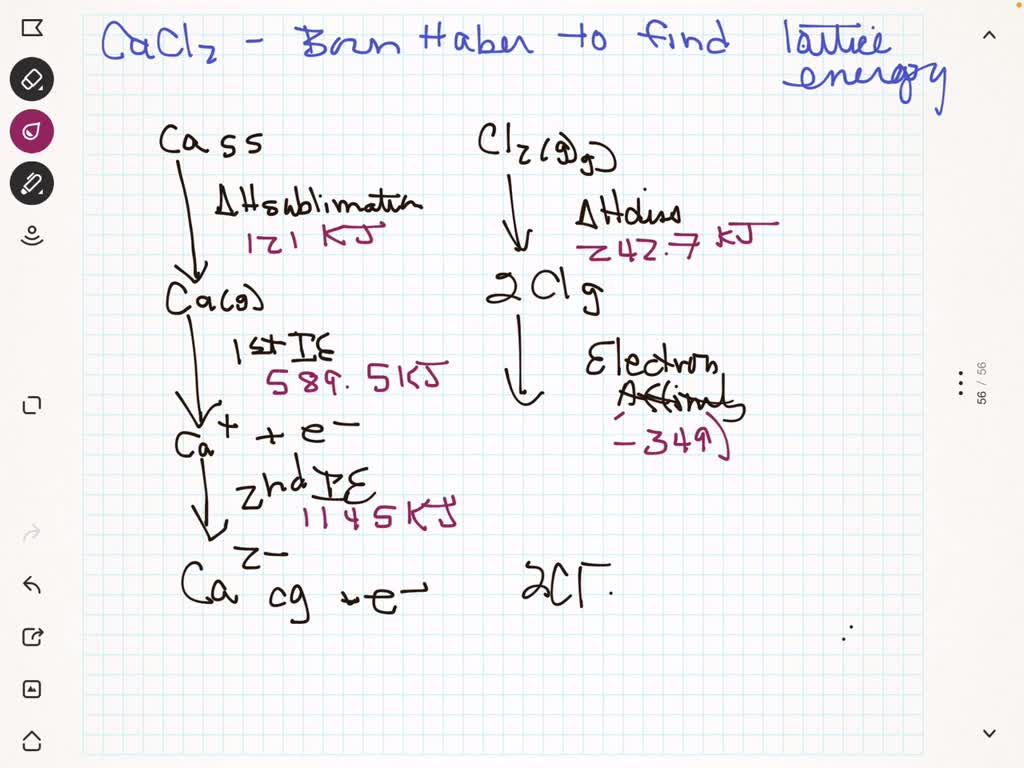 CaCl2 - Born Haber to find lattice
energy
Ca ss
ΔHsublimation
121 KJ
Ca(g)
1st IE
589.5KJ
Ca+ + e-
2nd IE
1145KJ
Ca2- cg + e-
Cl2(g)g)
ΔHdiss
242.7 KJ
2Cl g
Electron
Affinity
(-349)
2Cl-.
56 / 56